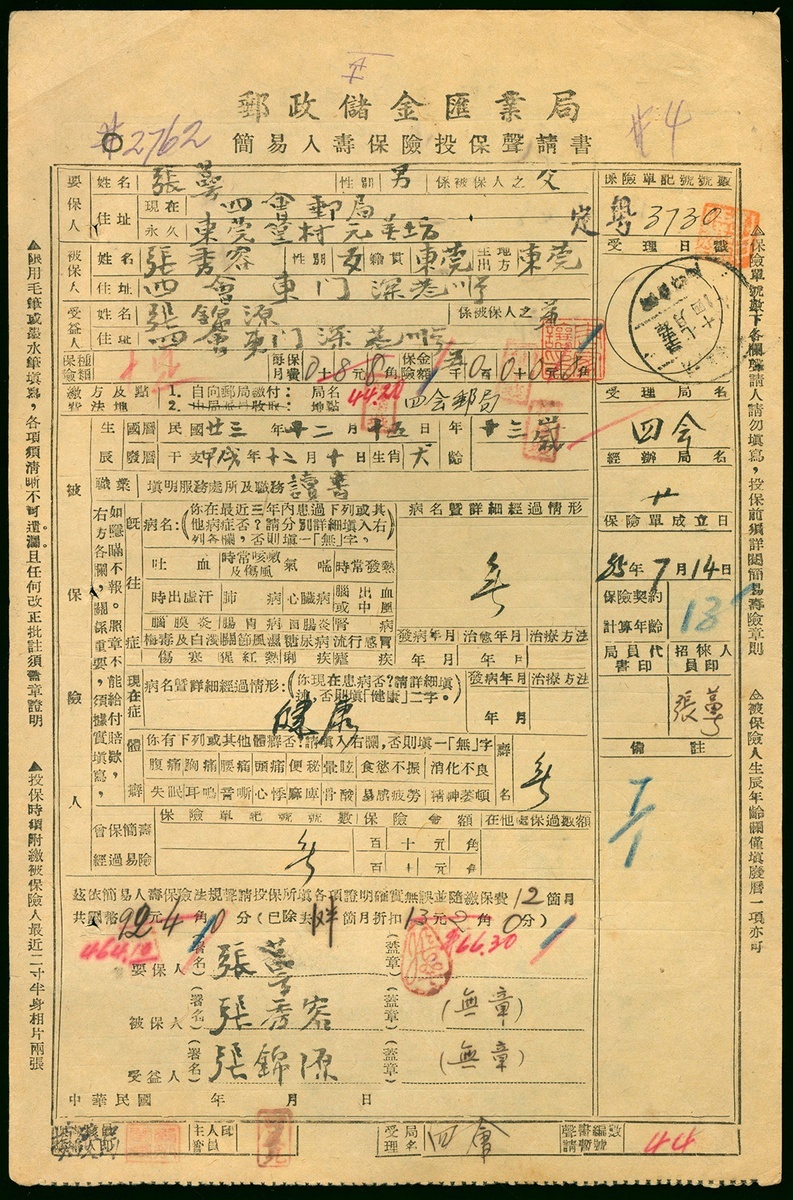 #2762
#4
郵政儲金匯業局
簡易人壽保險投保聲請書
要保人 姓名 張萼 性別 男 係被保人之 父
住址 現在 四會郵局
永久 東莞 村元美坊
被保人 姓名 張秀容 性別 女 籍貫 東莞 出生地方 東莞
住址 四會東門深巷
受益人 姓名 張錦源 係被保人之 弟
住址 四會東門深巷
保險種類 每月保費 0十8元8角 保金險額
繳費方法及地點 1. 自向郵局繳付: 局名 四会郵局
2. 由局派員收取: 地點
44.20
被保險人
生辰 國曆 民國廿三年十二月十五日 年齡 十三歲
廢曆 干支甲戌年十二月十日生肖犬
職業 填明服務處所及職務 讀書
如隱瞞不報。照章不能給付賠款,
右方各欄,關係重要,須據實填寫,
既往症
病名:(你在最近三年內患過下列或其他病症否?請分別詳細填入右列各欄,否則填一「無」字。
病名暨詳細經過情形
無
吐血 時常咳嗽及傷風 氣喘 時常發熱
時出虛汗 肺病 心臟病 腦或中出血風
腦膜炎 腸胃病 盲腸炎 腎病
梅毒及白濁 關節風濕 糖尿病 流行感冒
傷寒 猩紅熱 痢疾 瘧疾
發病年月 治愈年月 治療方法
年月 年月
現在症
病名暨詳細經過情形:(你現在患病否?請詳細填述,否則填「健康」二字。)
健康
發病年月 治療方法
年月
體癖
你有下列或其他體癖否?請填入右欄,否則填一「無」字
腹痛 胸痛 腰痛 頭痛 便秘 暈眩 食慾不振 消化不良
失眠 耳鳴 心悸 麻痺 骨酸 易感疲勞 精神萎頓
癖名 無
曾保簡易壽險經過
保險單記號號數 保險金額 在他處保過數額
無
百十元角
百十元角
茲依簡易人壽保險法規聲請投保所填各項證明確實無誤並隨繳保費12個月
共國幣92元4角0分(已除去 個月折扣13元2角0分)
464.10
66.30
要保人 (署名) 張萼 (蓋章)
被保人 (署名) 張秀容 (蓋章) (無章)
受益人 (署名) 張錦源 (蓋章) (無章)
中華民國 年 月 日
受理局名 四會
聲請書審查編號暫數 44
保險單記號號數
粵 3730
受理日戳
受理局名
四会
經辦局名
廿
保險單成立日
35年7月14日
保險契約計算年齡
13
局員代書印 招徠人員印
張萼
備註
▲限用毛筆或墨水筆填寫,各項須清晰不可遺漏且任何改正批註須蓋章證明
▲投保時須附繳被保險人最近二寸半身相片兩張
▲保險單號數下各欄聲請人請勿填寫,投保前須詳閱簡易壽險章則
▲被保險人生辰年齡欄僅填廢曆一項亦可